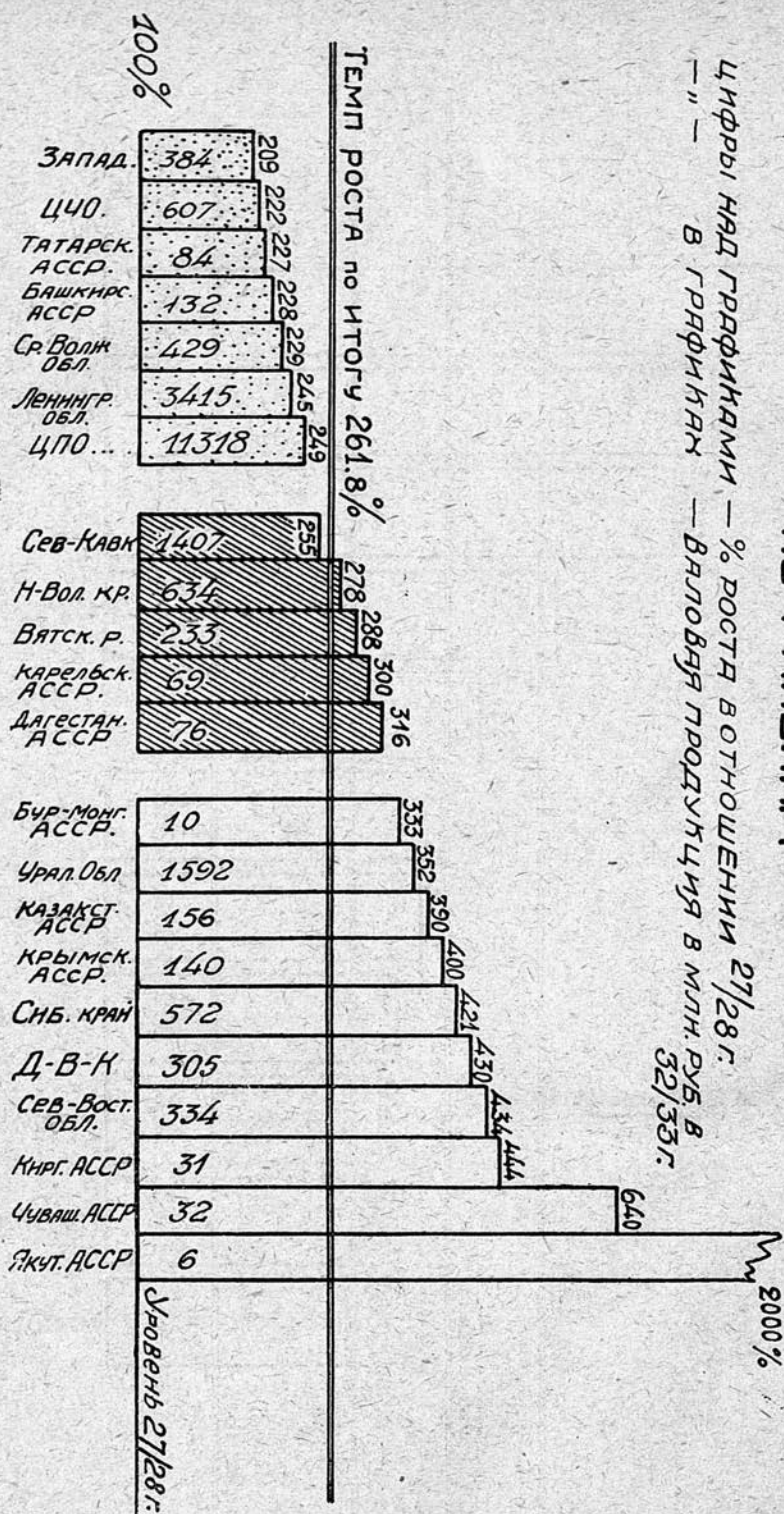 ЦИФРЫ НАД ГРАФИКАМИ — % РОСТА В ОТНОШЕНИИ 27/28 г.
— " — В ГРАФИКАХ — ВАЛОВАЯ ПРОДУКЦИЯ В МЛН. РУБ. В
32/33 г.
ТЕМП РОСТА ПО ИТОГУ 261.8%
100%
ЗАПАД.
384
209
ЦЧО.
607
222
ТАТАРСК.
АССР.
84
227
БАШКИРС.
АССР
132
228
СР. ВОЛЖ
ОБЛ.
429
229
ЛЕНИНГР.
ОБЛ.
3415
245
ЦПО...
11318
249
СЕВ-КАВК
1407
255
Н-ВОЛ. КР.
634
278
ВЯТСК. Р.
233
288
КАРЕЛЬСК.
АССР.
69
300
ДАГЕСТАН.
АССР
76
316
БУР-МОНГ.
АССР.
10
333
УРАЛ. ОБЛ
1592
352
КАЗАКСТ.
АССР
156
390
КРЫМСК.
АССР.
140
400
СИБ. КРАЙ
572
421
Д-В-К
305
430
СЕВ-ВОСТ.
ОБЛ.
334
434
КИРГ. АССР
31
444
ЧУВАШ. АССР
32
640
ЯКУТ. АССР
6
2000%
УРОВЕНЬ 27/28 г.